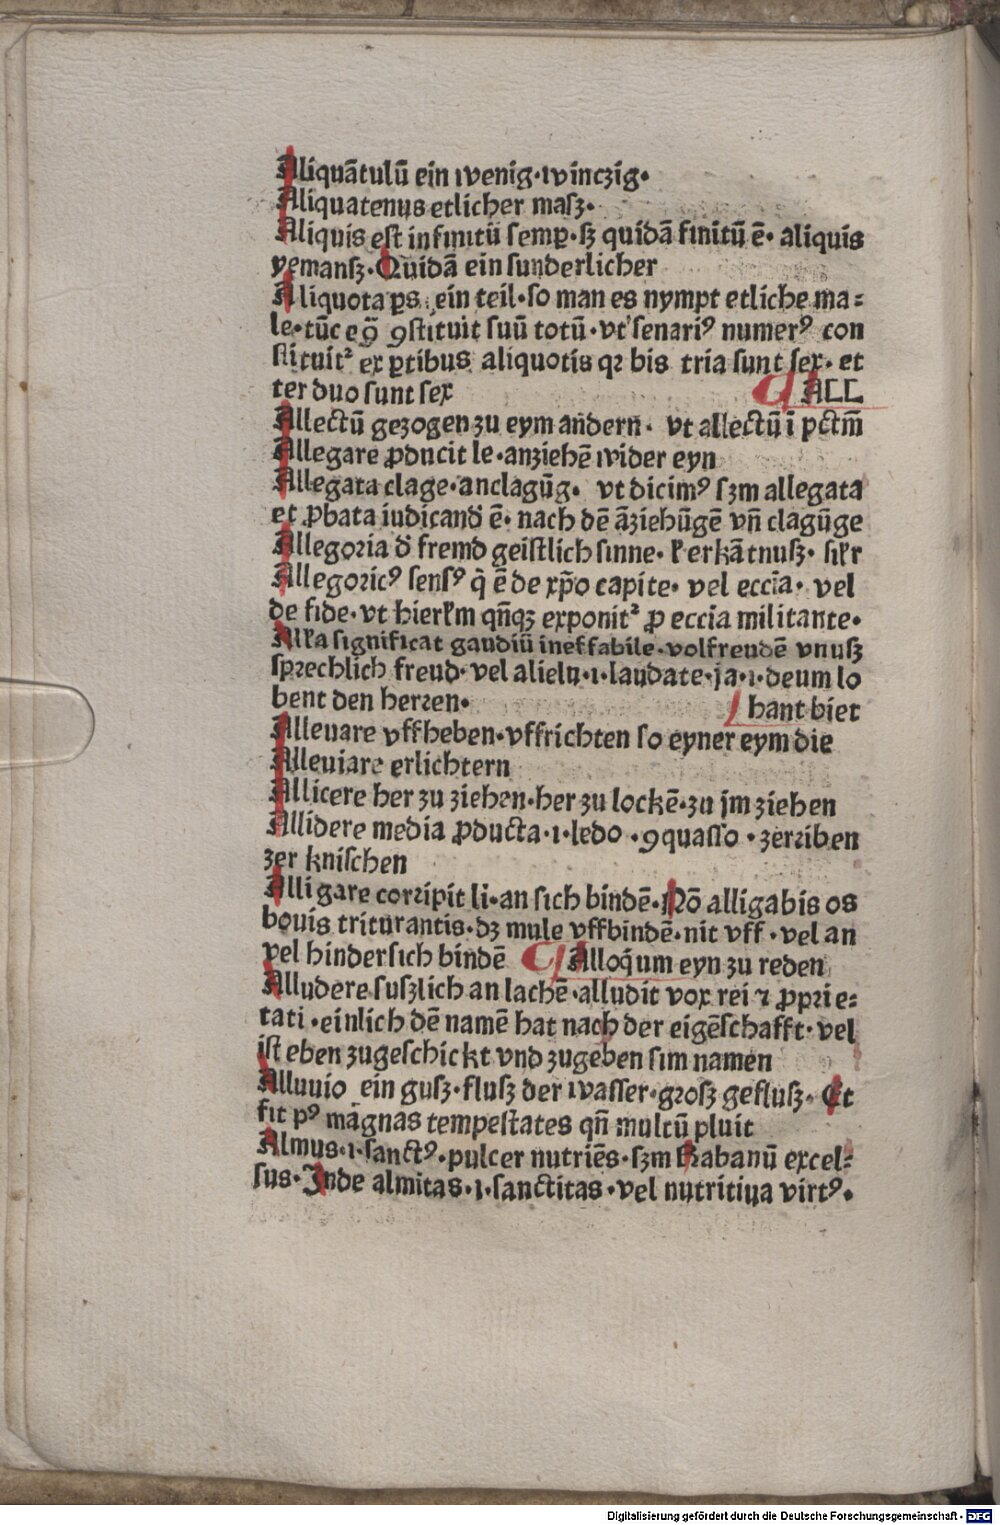 Aliquātulū ein wenig·winczig·
Aliquatenus etlicher maſz·
Aliquis eſt infinitū ſemꝑ·ſꝫ quidā finitū ē· aliquis
yemanſz·Quidā ein ſunderlicher
Aliquota ꝑs ein teil·ſo man es nympt etliche ma⸗
le·tūc eḡ ꝯſtituit ſuū totū·vt ſenariꝰ numerꝰ con
ſtituitᷣ ex ꝑtibus aliquotis qꝛ bis tria ſunt ſex· et
ter duo ſunt ſex ¶ ALL
Allectū gezogen zu eym andern· vt allectū ī pctm̄
Allegare ꝓducit le·anziehē wider eyn
Allegata clage·anclagūg· vt dicimꝰ ſꝫm allegata
et ꝓbata iudicand̄ ē· nach dē āziehūgē vn̄ clagūge
Allegoꝛia d̄ fremd geiſtlich ſinne· kerkātnuſz· ſikr
Allegoꝛicꝰ ſenſꝰ q̄ ē de xp̄o capite· vel eccīa· vel
de fide·vt hierłm qn̄qꝫ exponitᷣ ꝓ eccīa militante·
Alła ſignificat gaudiū ineffabile·volfreudē vnuſz
ſprechlich freud·vel alielu·i·laudate·ja·i·deum lo
bent den herꝛen· hant biet
Alleuare vffheben·vffrichten ſo eyner eym die
Alleuiare erlichtern
Allicere her zu ziehen·her zu lockē·zu jm ziehen
Allidere media ꝓducta·i·ledo·ꝯquaſſo·zerꝛiben
zer kniſchen
Alligare coꝛꝛipit li·an ſich bindē·Nō alligabis os
bouis triturantis·dꝫ mule vffbindē·nit vff·vel an
vel hinderſich bindē ¶ Alloq̄um eyn zu reden
Alludere ſuſzlich an lachē·alludit vox rei ⁊ ꝓpꝛie⸗
tati·einlich dē namē hat nach der eigēſchafft·vel
iſt eben zugeſchickt vnd zugeben ſim namen
Alluuio ein guſz·fluſz der waſſer·gꝛoſz gefluſz· Et
fit pꝰ magnas tempeſtates qn̄ multū pluit
Almus·i·ſanctꝰ·pulcer nutriēs·ſꝫm Rabanū excel⸗
ſus·Inde almitas·i·ſanctitas·vel nutritiua virtꝰ·
Digitalisierung gefördert durch die Deutsche Forschungsgemeinschaft - DFG